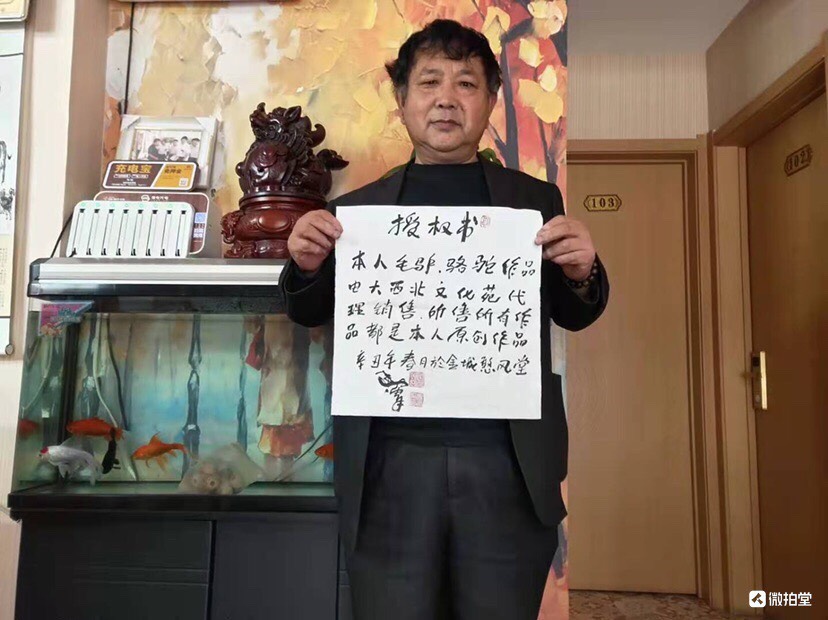 授权书
本人毛驴、骆驼作品
由大西北文化苑代
理销售，所售所有作
品都是本人原创作品
辛丑年春月於金城憨风堂
充电宝
103
302
微拍堂